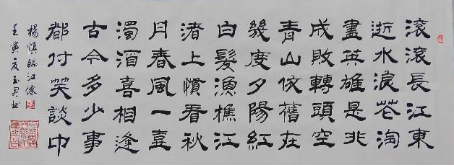 滾滾長江東
逝水浪花淘
盡英雄是非
成敗轉頭空
青山依舊在
幾度夕陽紅
白髮漁樵江
渚上慣看秋
月春風一壺
濁酒喜相逢
古今多少事
都付笑談中
楊慎臨江仙
壬寅夏玉君書